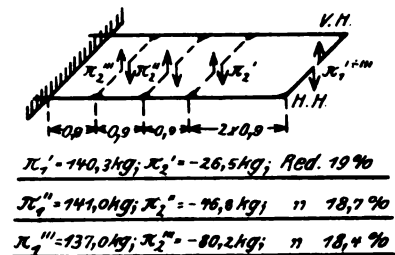 V.H.
π₂''' π₂'' π₂' π₁'÷'''
H.H.
0,9 0,9 0,9 2x0,9
π₁'=140,3kg; π₂'=-26,5kg; Red. 19%
π₁''=141,0kg; π₂''=-46,8kg; n 18,7%
π₁'''=137,0kg; π₂'''=-80,2kg; n 18,4%